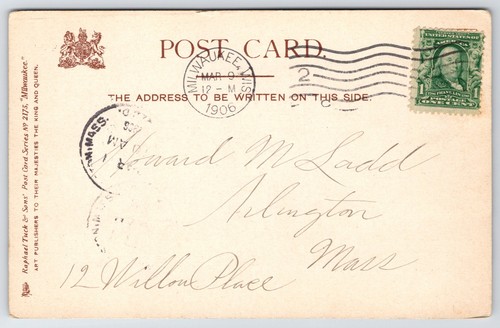 POST CARD.
THE ADDRESS TO BE WRITTEN ON THIS SIDE.
MILWAUKEE, WIS.
MAR 9
12 - M
1906
2
Howard M Ladd
Arlington
Mass
12 Willow Place
Raphael Tuck & Sons' Post Card Series No 2175 "Milwaukee."
ART PUBLISHERS TO THEIR MAJESTIES THE KING AND QUEEN.
MASS.
AM